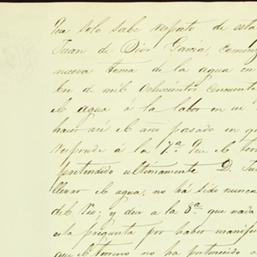 que solo sabe respecto de esta
Juan de Dios Garcia
nueva toma de la agua en
de mil ochocientos cincuenta
el agua á la labor en su
hacer así el año pasado en q
responde á la 7ª que el
pretendido ultimamente D. Ju
llevar el agua, no ha sido nunca
del Rio; y dice a la 8ª que nada
esta pregunta por haber manifes
que el terreno no ha pertenecido á